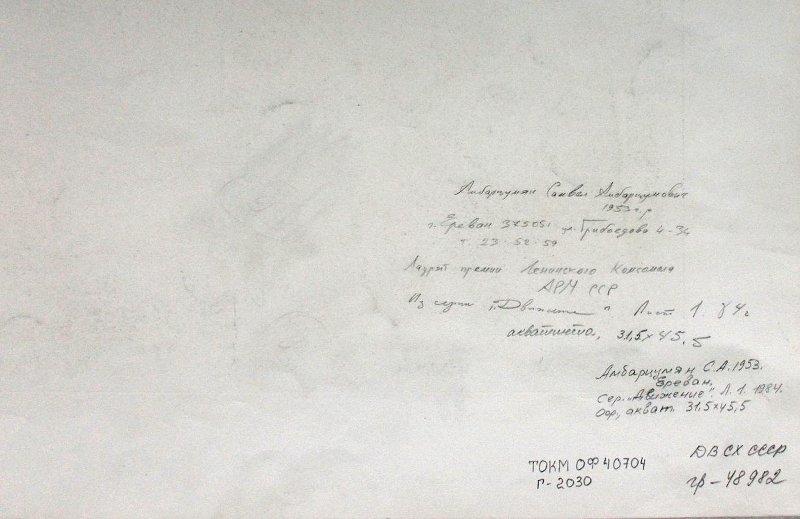 Амбарцумян Самвел Амбарцумович
1953 г.р
г. Ереван 375051 ул. Грибоедова 4-34
т. 23-52-59
Лауреат премии Ленинского Комсомола
АРМ ССР
Из серии "Движение" Лист 1. 84 г
акватинта, 31,5х45,5
Амбарцумян С.А. 1953.
Ереван,
Сер. "Движение". Л. 1. 1984.
Оф, акват. 31.5х45,5
ТОКМ ОФ 40704
Г-2030
ДВ СХ СССР
гр-48982